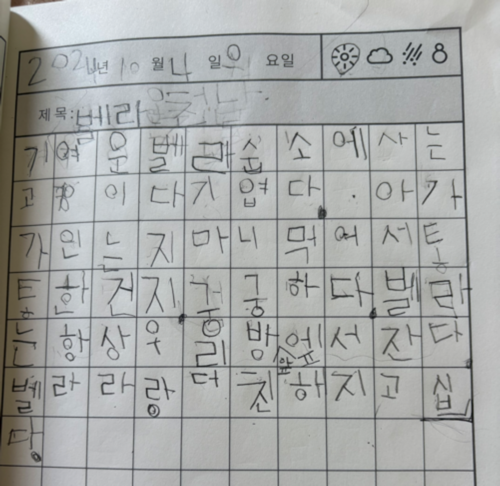 2024년 10월 4일 요일 8
제목: 벨라
기여운 벨라 숩소에 사는
고양이다 기엽다. 아가
가 인는지 마니 먹어서 통
통한건지 궁궁하다. 벨라
는 항상 우리방 앞에서 잔다.
벨라라랑 더 친하지고 십
다.